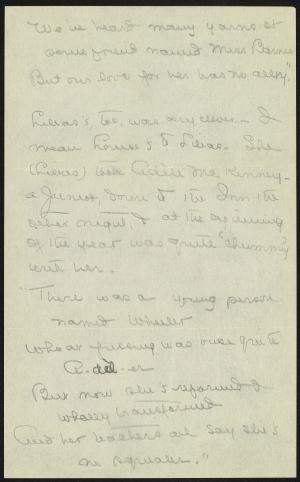 We've heard many yarns of
some friend named Miss Barnes
But our love for her has no alloy."
Lilias's, too, was very clever – I
mean Louise's to Lilias. She
(Lilias) took Adele McKinney –
a Junior, down to the Inn the
other night, & at the beginning
of the year was quite "chummy"
with her.
"There was a young person
named Wheeler
Who at fussing was once quite
A-del-er
But now she's reformed &
wholly transformed
And her teachers all say she's
no squealer."